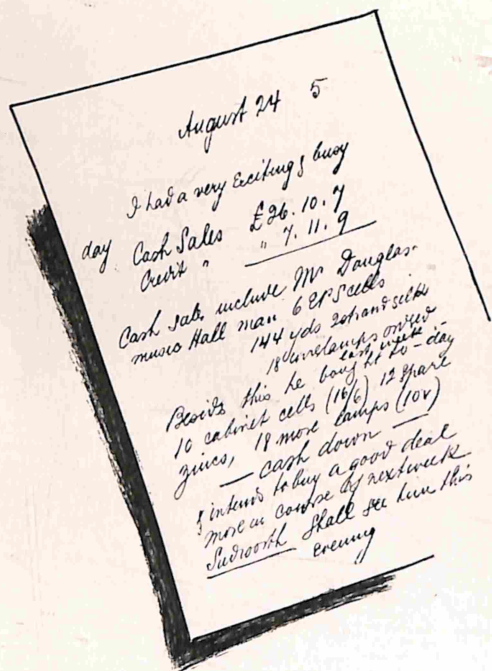 August 24 5
I had a very Exciting & busy
day Cash Sales £26.10.7
Credit " " 7.11.9
Cash sales include Mr Douglas.
music Hall man 6 EPS cells
144 yds 20 strand silk
18 owed
last week.
Besides this he bought to-day
10 cabinet cells (16/6) 12 spare
zincs, 18 more lamps (10v)
— cash down —
& intends to buy a good deal
more in course of next week
Shall see him this
evening